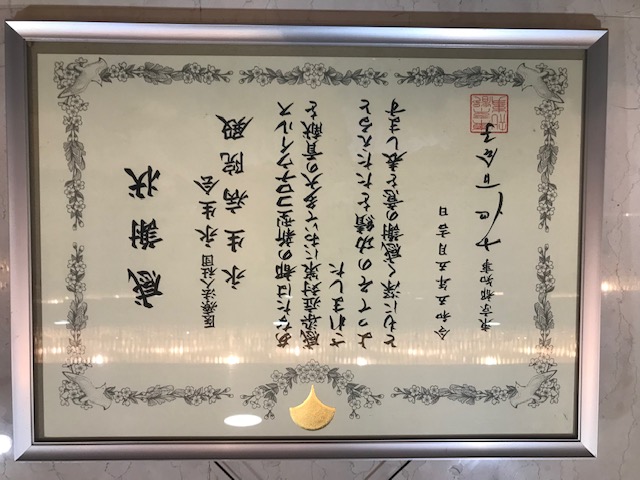 感謝状
医療法人社団 永生会
永生病院 殿
あなたは都の新型コロナウイルス
感染症対策において多大の貢献を
されました
よってその功績をたたえると
ともに深く感謝の意を表します
令和五年五月吉日
東京都知事 小池百合子